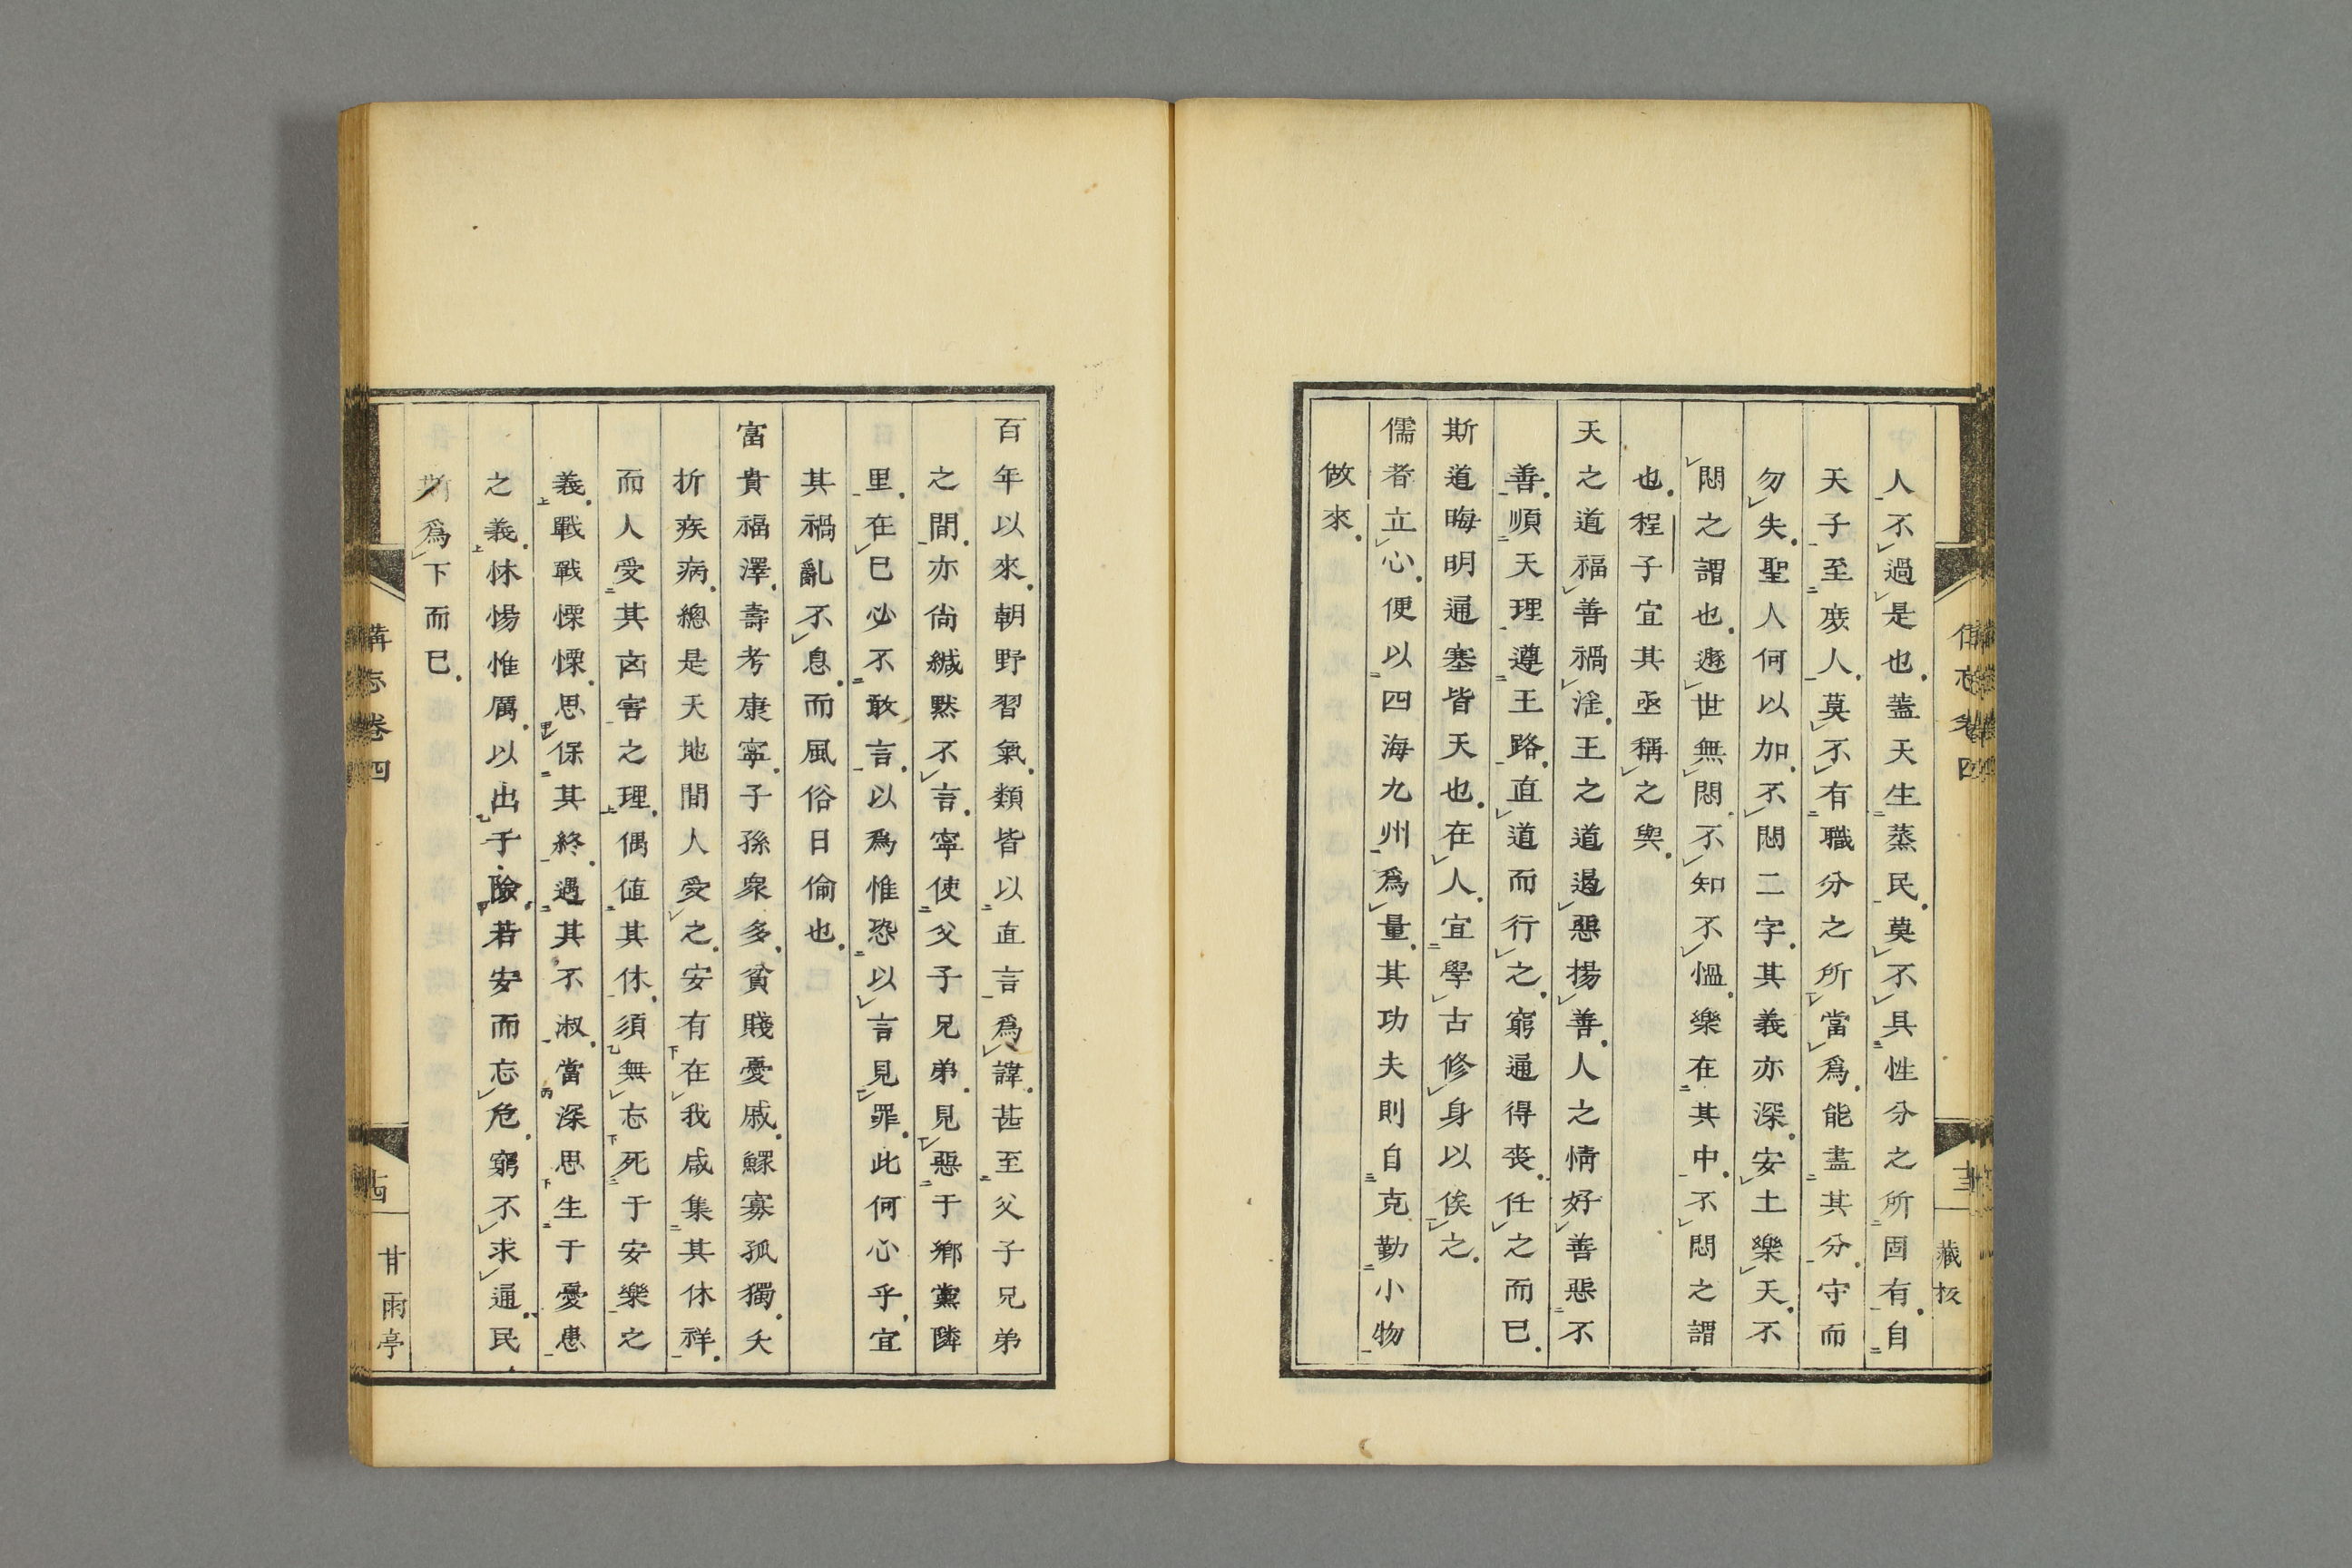 人不過是也。蓋天生蒸民。莫不具性分之所固有。自
天子至庻人。莫不有職分之所當爲。能盡其分。守而
勿失。聖人何以加。不悶二字。其義亦深。安土樂天。不
悶之謂也。遯世無悶。不知不慍。樂在其中。不悶之謂
也。程子宜其亟稱之與。
天之道福善禍淫。王之道遏惡揚善。人之情好善惡不
善。順天理遵王路。直道而行之。窮通得丧。任之而已。
斯道晦明通塞皆天也。在人。宜學古修身以俟之。
儒者立心。便以四海九州爲量。其功夫則自克勤小物
做來。
卷四
藏板
百年以來。朝野習氣。類皆以直言爲諱。甚至父子兄弟
之間。亦尙緘默不言。寧使父子兄弟。見惡于鄉黨隣
里。在已必不敢言。以爲惟恐以言見罪。此何心乎。宜
其禍亂不息。而風俗日偷也。
富貴福澤。壽考康寧。子孫衆多。貧賤憂戚。鰥寡孤獨。夭
折疾病。總是天地間人受之。安有在我咸集其休祥。
而人受其凶害之理。偶値其休。須無忘死于安樂之
義。戰戰慄慄。思保其終。遇其不淑。當深思生于憂患
之義。怵惕惟厲。以出于險。若安而忘危。窮不求通。民
斯爲下而已。
講志卷四
甘雨亭